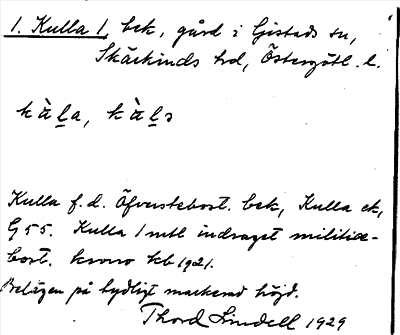 1. Kulla 1, bek, gård i Gistads sn,
Skärkinds hd, Östergötl. l.
kàḻa, kàḻs
Kulla f.d. Öfverstebost. bek, Kulla ek,
G 55. Kulla 1 mtl indraget militie-
bost. krono kb 1921.
Belägen på tydligt markerad höjd.
Thord Lindell 1929